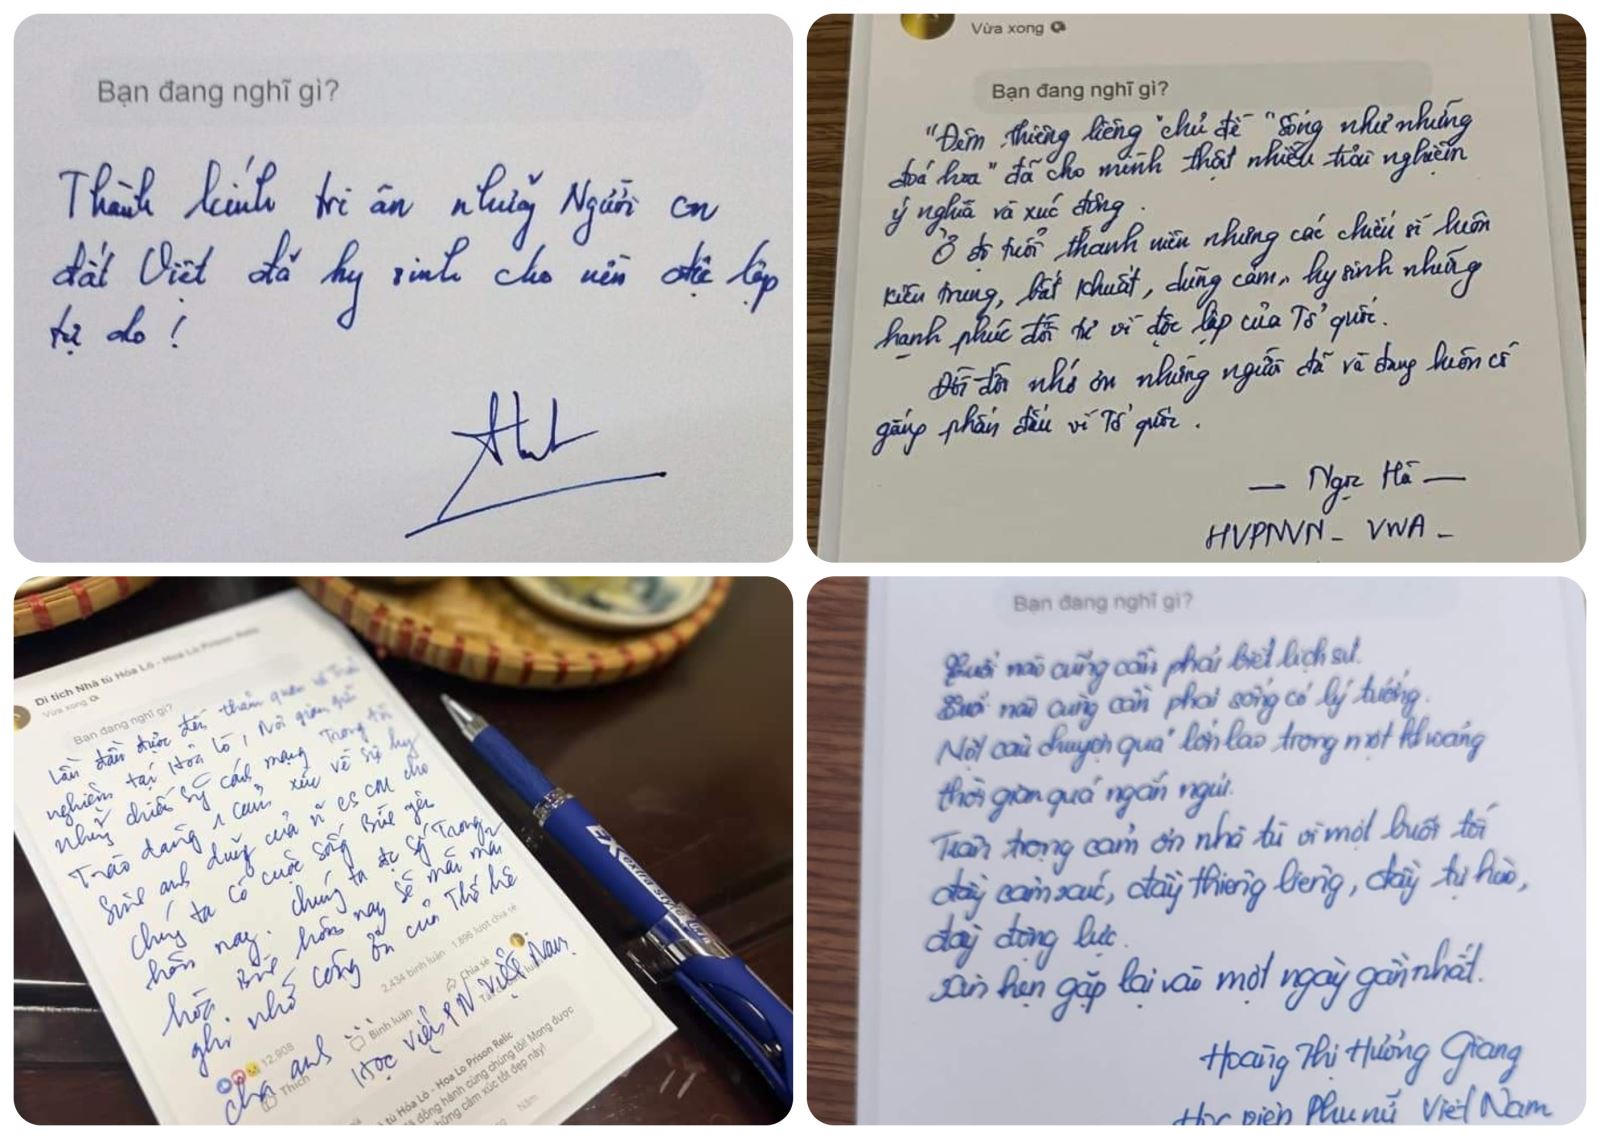 Bạn đang nghĩ gì?
Thành kính tri ân những Người con
đất Việt đã hy sinh cho nền độc lập
tự do!
Vừa xong
Bạn đang nghĩ gì?
"Đêm thiêng liêng" chủ đề "Sống như những
đoá hoa" đã cho mình thật nhiều trải nghiệm
ý nghĩa và xúc động.
Ở độ tuổi thanh niên nhưng các chiến sĩ luôn
kiên trung, bất khuất, dũng cảm, hy sinh những
hạnh phúc đôi tư vì độc lập của Tổ quốc.
Đời đời nhớ ơn những người đã và đang luôn cố
gắng phấn đấu vì Tổ quốc.
— Ngọc Hà —
HVPNVN - VWA -
Di tích Nhà tù Hỏa Lò - Hoa Lo Prison Relic
Vừa xong
Bạn đang nghĩ gì?
Lần đầu được đến thăm quan và Trải
nghiệm tại Hoả Lò, Nơi giam giữ
những chiến sỹ cách mạng Trong tôi
Trào dâng 1 cảm xúc về sự hy
sinh anh dũng của
chúng ta có cuộc sống Bình yên
hôm nay. chúng ta được sống Trong
hòa Bình hôm nay sẽ mãi mãi
ghi nhớ công ơn của Thế hệ
cha anh
12.908
2.434 bình luận 1.896 lượt chia sẻ
Thích
Bình luận
Chia sẻ
Học viện PN Việt Nam
tù Hỏa Lò - Hoa Lo Prison Relic
đồng hành cùng chúng tôi! Mong được
những cảm xúc tốt đẹp này!
Bạn đang nghĩ gì?
Tuổi nào cũng cần phải biết lịch sử.
Tuổi nào cũng cần phải sống có lý tưởng.
Một câu chuyện quá lớn lao trong một khoảng
thời gian quá ngắn ngủi.
Trân trọng cảm ơn nhà tù vì một buổi tối
đầy cảm xúc, đầy thiêng liêng, đầy tự hào,
đầy động lực.
Xin hẹn gặp lại vào một ngày gần nhất.
Hoàng Thị Hương Giang
Học viện Phụ nữ Việt Nam
EX extra style